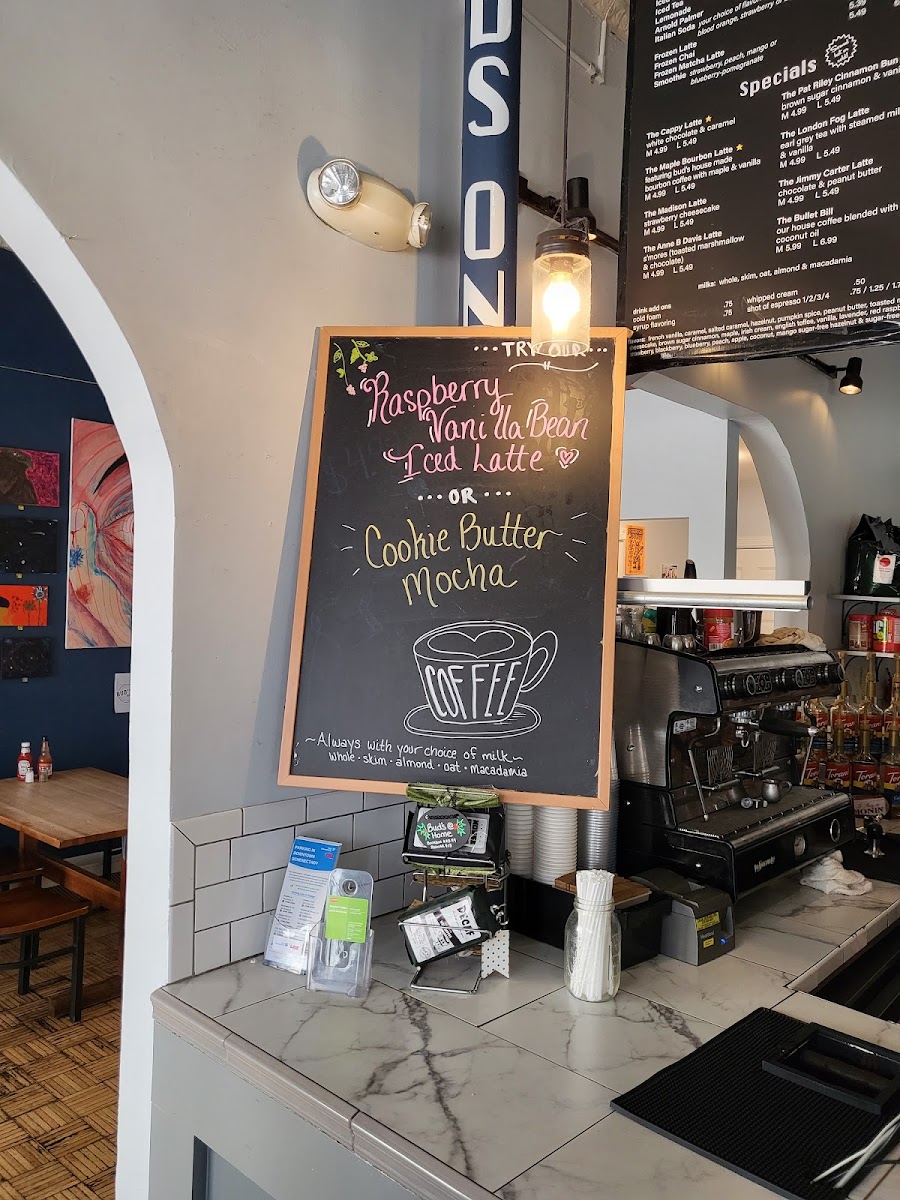 DS ON
Iced Tea
Lemonade
Arnold Palmer
Italian Soda your choice of
blood orange, strawberry or
5.39
5.49
Frozen Latte
Frozen Chai
Frozen Matcha Latte
Smoothie strawberry, peach, mango or
blueberry-pomegranate
Specials
The Cappy Latte ★
white chocolate & caramel
M 4.99 L 5.49
The Maple Bourbon Latte ★
featuring bud's house made
bourbon coffee with maple & vanilla
M 4.99 L 5.49
The Madison Latte
strawberry cheesecake
M 4.99 L 5.49
The Anne B Davis Latte
s'mores (toasted marshmallow
& chocolate)
M 4.99 L 5.49
The Pat Riley Cinnamon Bun
brown sugar cinnamon &
M 4.99 L 5.49
The London Fog Latte
earl grey tea with steamed
& vanilla
M 4.99 L 5.49
The Jimmy Carter Latte
chocolate & peanut butter
M 4.99 L 5.49
The Bullet Bill
our house coffee blended with
coconut oil
M 5.99 L 6.99
milks: whole, skim, oat, almond & macadamia
drink add ons
cold foam .75
syrup flavoring .75
.50
whipped cream
shot of espresso 1/2/3/4 .75 / 1.25 /
french vanilla, caramel, salted caramel, hazelnut, pumpkin spice, peanut butter, toasted
brown sugar cinnamon, maple, irish cream, english toffee, vanilla, lavender, red
blackberry, blueberry, peach, apple, coconut, mango sugar-free hazelnut &
•••TRY OUR•••
Raspberry
Vanilla Bean
Iced Latte
••• OR •••
Cookie Butter
Mocha
COFFEE
~Always with your choice of milk~
whole • skim • almond • oat • macadamia
Bud's
Home
DECAF
PARKING IN
DOWNTOWN
SCHENECTADY
Torani
Torani
Torani
MONIN